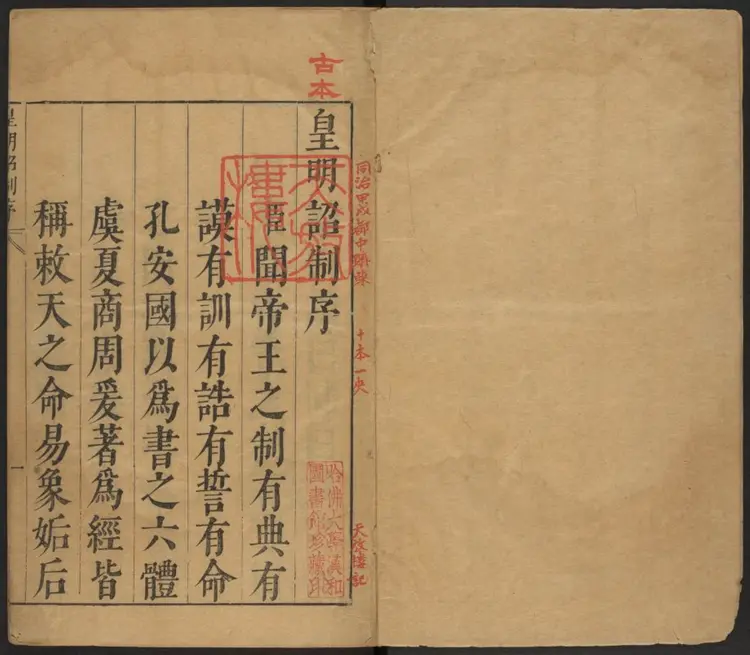 古本
同治甲戌都中
十本一
天放樓記
皇明詔制序
哈佛大學漢和
圖書館珍藏印
臣聞帝王之制有典有
謨有訓有誥有誓有命
孔安國以爲書之六體
虞夏商周爰著爲經皆
稱敕天之命易象姤后
皇明詔制序
一